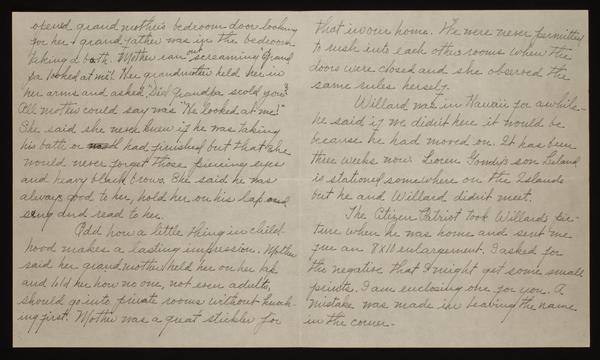 opened grand mother's bedroom door looking
for her & grand father was in the bedroom
taking a bath. Mother ran out screaming "Grand
pa looked at me". Her grandmother held her in
her arms and asked, "Did Grandpa scold you?"
All mother could say was "He looked at me!"
She said she never knew if he was taking
his bath or had finished but that she
would never forget those piercing eyes
and heavy black brows. She said he was
always good to her, hold her on his lap and
sing and read to her.
Odd how a little thing in child
hood makes a lasting impression. Mother
said her grandmother held her on her lap
and told her how no one, not even adults,
should go into private rooms without knock-
ing first. Mother was a great stickler for
that in our home. We were never permitted
to rush into each other rooms when the
doors were closed and she observed the
same rules herself.
Willard was in Hawaii for awhile
he said if we didn't hear it would be
because he had moved on. It has been
three weeks now. Leoren son Leland
is stationed somewhere on the Islands
but he and Willard didn't meet.
The Citizen Patriot took Willards pic-
ture when he was home and sent me
me an 8x10 enlargement. I asked for
the negative that I might get some small
prints. I am enclosing one for you. A
mistake was made in leaving the name
in the corner-